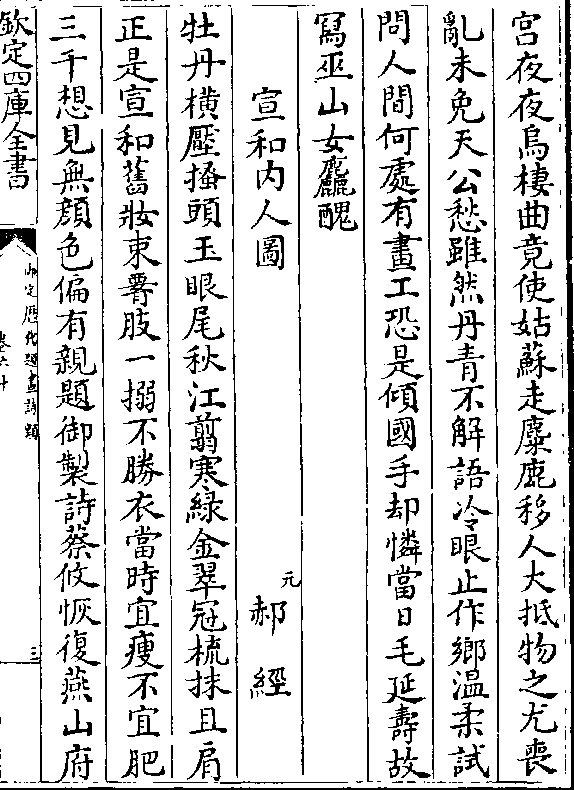 宫夜夜烏棲曲竟使姑蘇走麋鹿移人大抵物之尤喪
亂未免天公愁雖然丹青不解語冷眼止作鄉溫柔試
問人間何處有畫工恐是傾國手却憐當日毛延壽故
寫巫山女麤醜
宣和内人圖
元 郝經
牡丹横壓搔頭玉眼尾秋江翦寒緑金翠冠梳抹且肩
正是宣和舊妝束臂肢一搦不勝衣當時宜瘦不宜肥
三千想見無顔色偏有親題御製詩蔡攸恢復燕山府
欽定四庫全書
御定歷代題畫詩類
卷六十
三